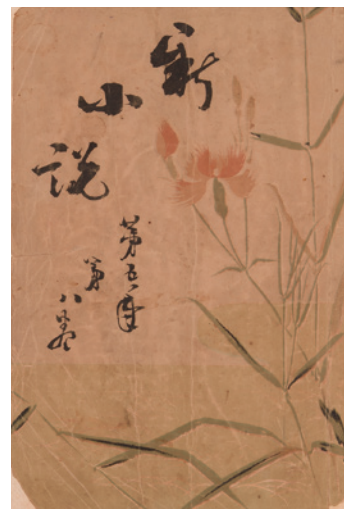 新小説
第五年
第八巻